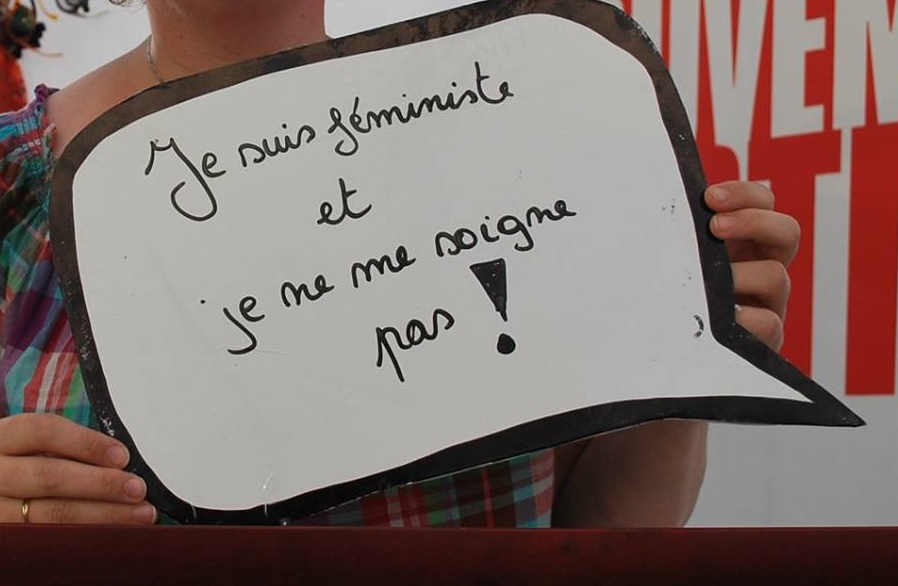 Je suis féministe
et
je ne me soigne
pas !